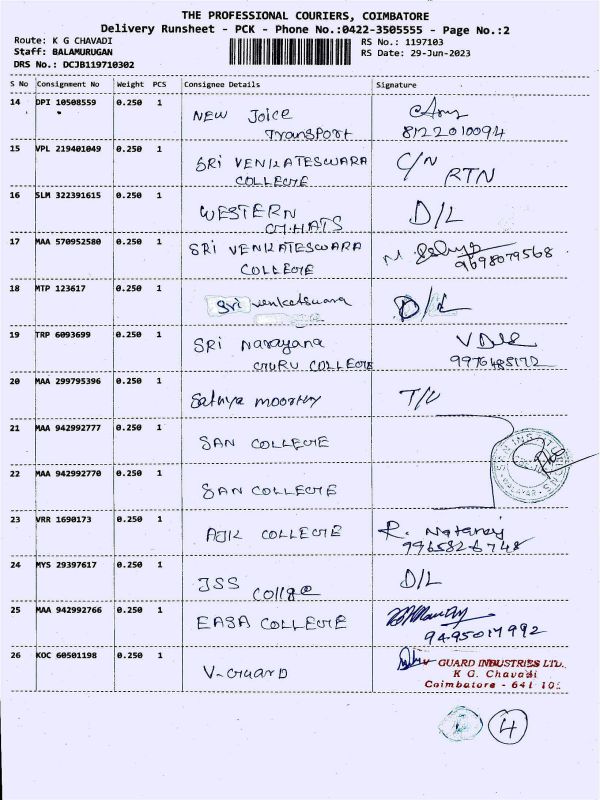 THE PROFESSIONAL COURIERS, COIMBATORE
Delivery Runsheet - PCK - Phone No.:0422-3505555 - Page No.:2
Route: K G CHAVADI
RS No.: 1197103
Staff: BALAMURUGAN
RS Date: 29-Jun-2023
DRS No.: DCJB119710302
S No Consignment No Weight PCS Consignee Details Signature
14 DPI 10508559 0.250 1 NEW Joice
Transport 8122010094
15 VPL 219401049 0.250 1 SRI VENKATESWARA C/N
COLLEGE RTN
16 SLM 322391615 0.250 1 WESTERN D/L
GHATS
17 MAA 570952580 0.250 1 SRI VENKATESWARA M.
COLLEGE 9698079568
18 MTP 123617 0.250 1 Sri venketswara D/L
19 TRP 6093699 0.250 1 SRI Narayana
GURU COLLEGE 9976485172
20 MAA 299795396 0.250 1 Sathya moorthy
21 MAA 942992777 0.250 1 SAN COLLEGE
22 MAA 942992770 0.250 1 SAN COLLEGE
WALAYAR
23 VRR 1690173 0.250 1 AJK COLLEGE R. Nataraj
9965826748
24 MYS 29397617 0.250 1 JSS Collge D/L
25 MAA 942992766 0.250 1 EASA COLLEGE
9495017992
26 KOC 60501198 0.250 1 V-GUARD V GUARD INDUSTRIES LTD.
K G. Chavadi
Coimbatore - 641 10
4